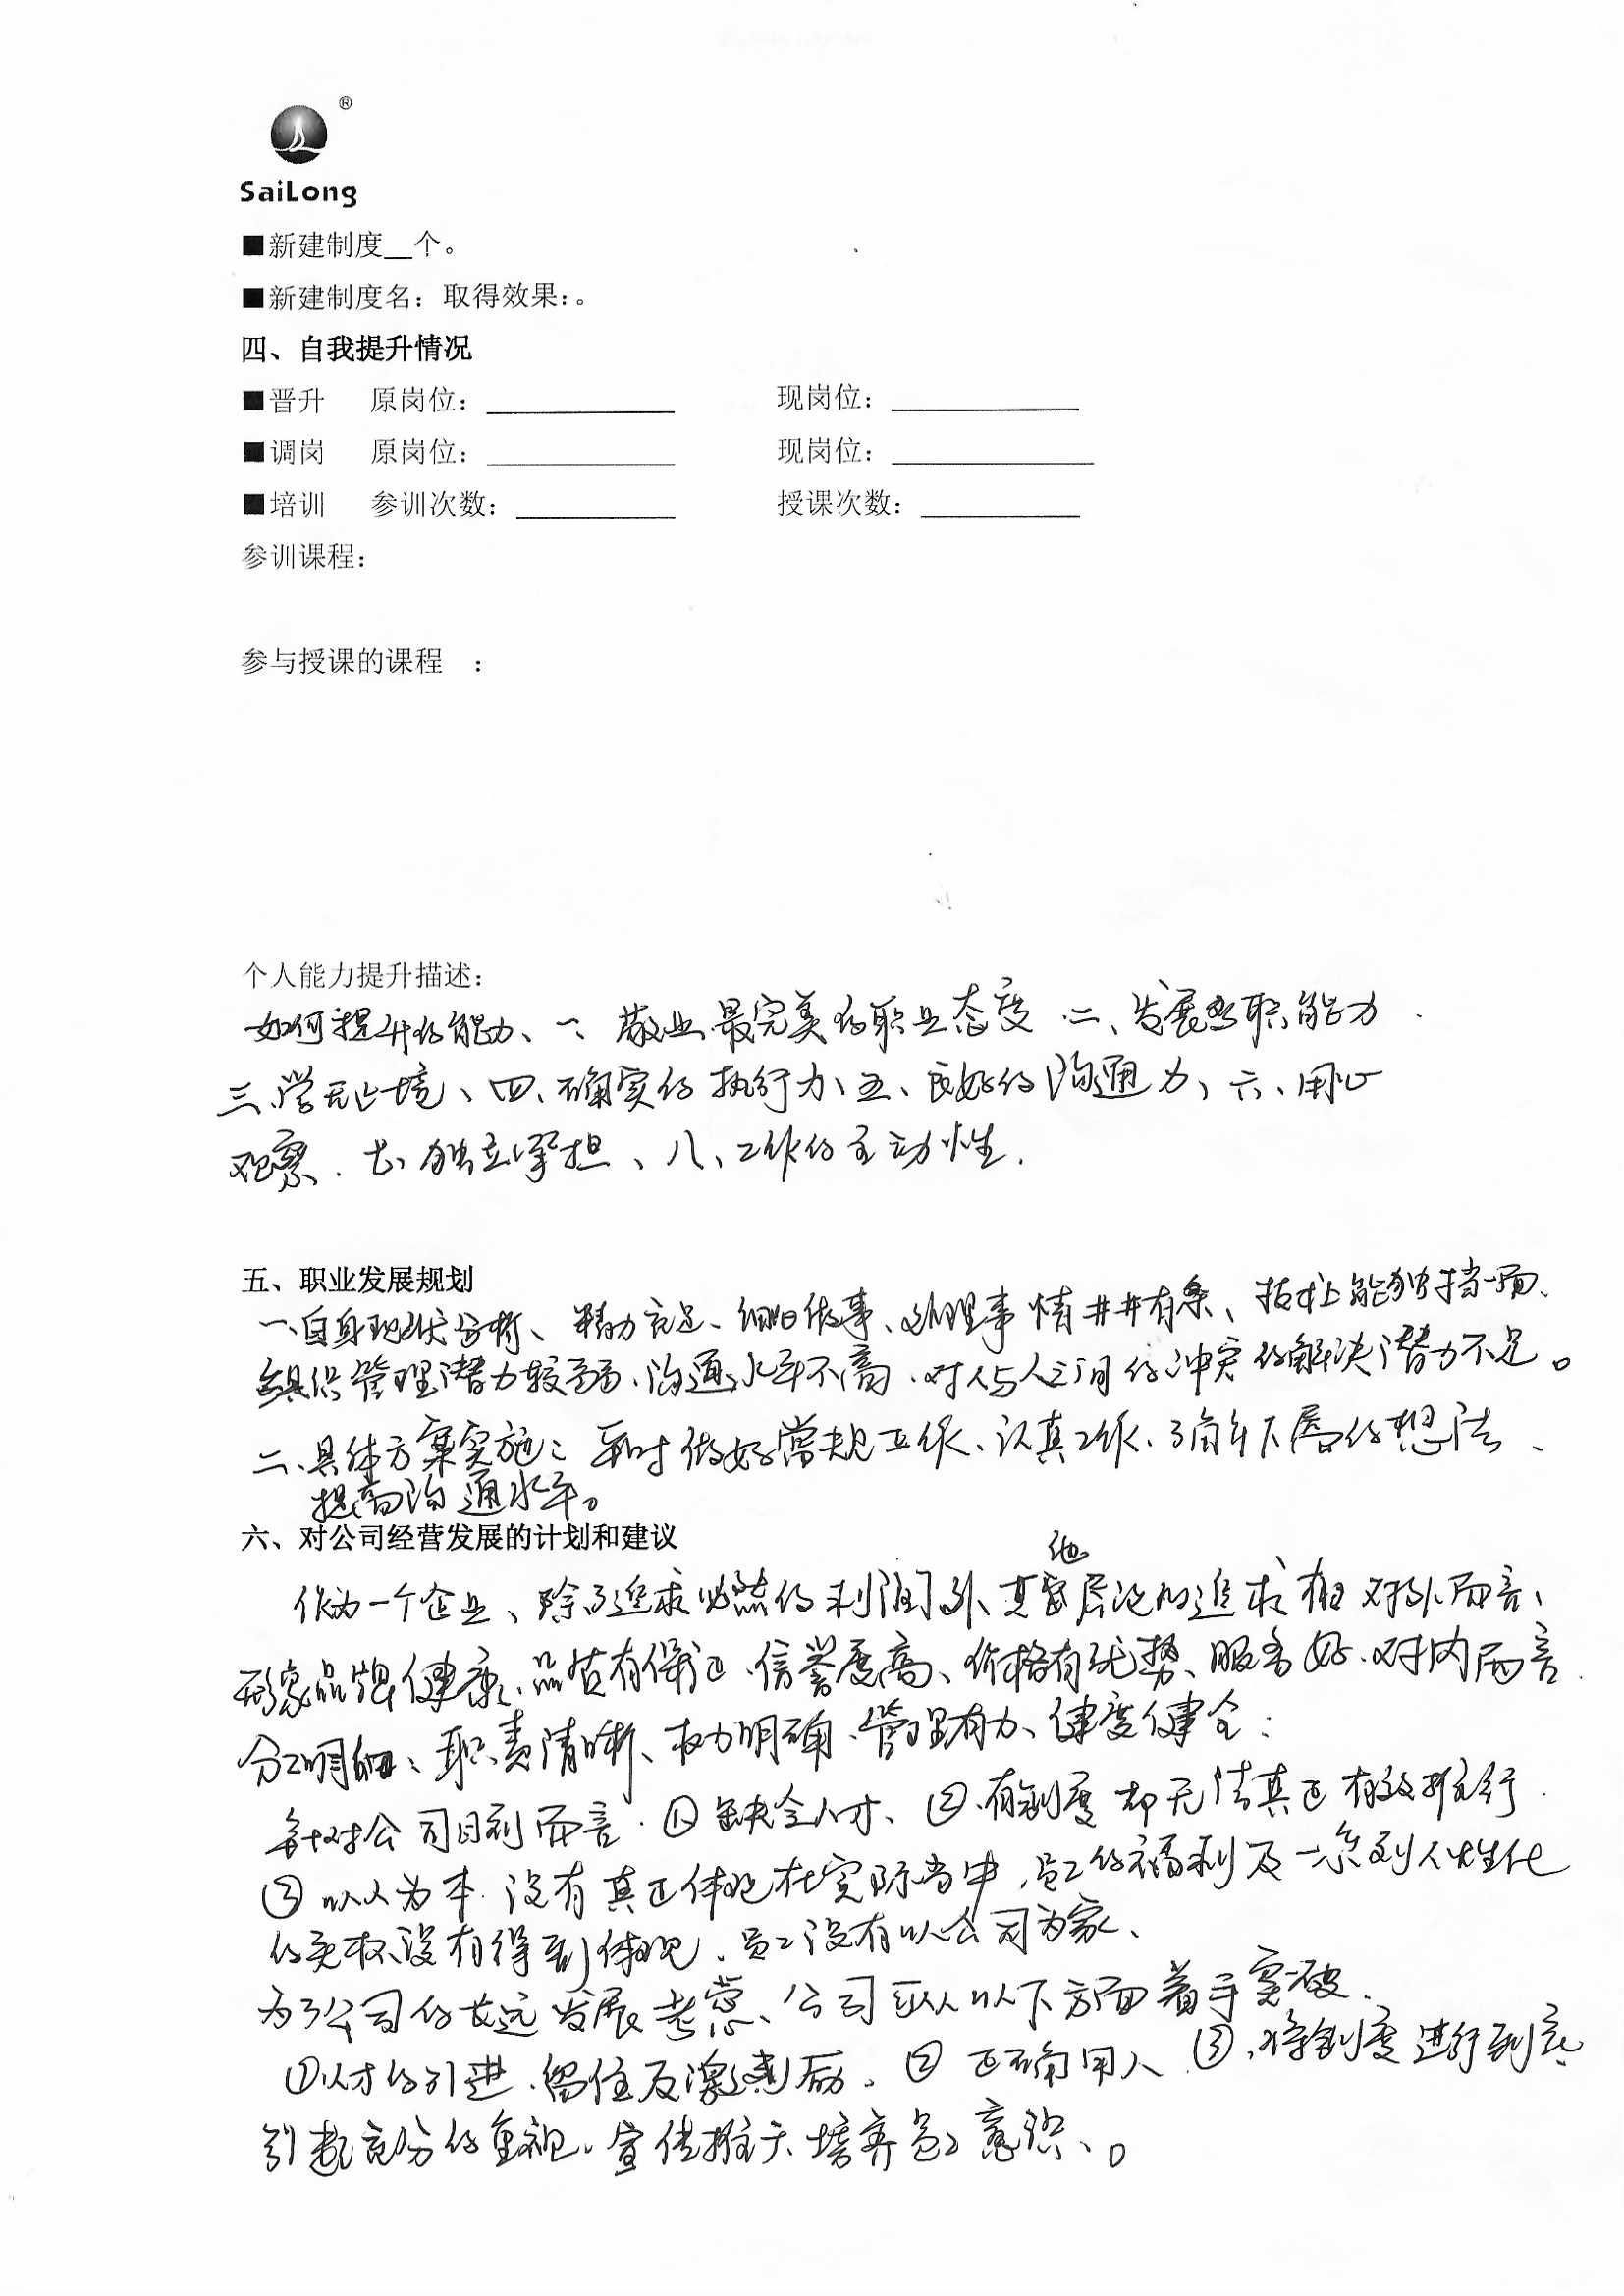 ®
SaiLong
■新建制度__个。
■新建制度名：取得效果:。
四、自我提升情况
■晋升 原岗位：____________ 现岗位：____________
■调岗 原岗位：____________ 现岗位：____________
■培训 参训次数：__________ 授课次数：__________
参训课程：
参与授课的课程 ：
个人能力提升描述：
如何提升的能力、一、敬业最完美的职业态度 二、发展 职能力
三、学无止境、四、确实的执行力、五、良好的沟通力、六、用心
观察、七、独立承担、八、工作的主动性.
五、职业发展规划
一、自身现状分析、精力充足、细心做事、处理事情井井有条、技术上能独挡一面、
组织管理潜力较弱、沟通水平不高、对人与人之间的冲突的解决潜力不足。
二、具体方案实施：平时做好常规工作、认真工作、了解下属的想法、
提高沟通水平。
六、对公司经营发展的计划和建议
他
作为一个企业、除了追求必然的利润外、其 层记的追求 对外而言、
形象品牌健康、品质有保证、信誉度高、价格有优势、服务好、对内而言
分工明细、职责清晰、权力明确、管理有力、健度健全：
针对公司目前而言.①缺乏人才、②、有制度却无法真正有效推行.
③以人为本.没有真正体现在实际当中,员工的福利及一系列人性化
的 没有得到体现、员工没有以公司为家、
为了公司的长远发展考虑、公司可从以下方面着手突破.
①人才的引进、留住及激励。②正确用人③、将制度进行到底
引起充分的重视。宣传推广培养员工意识、。